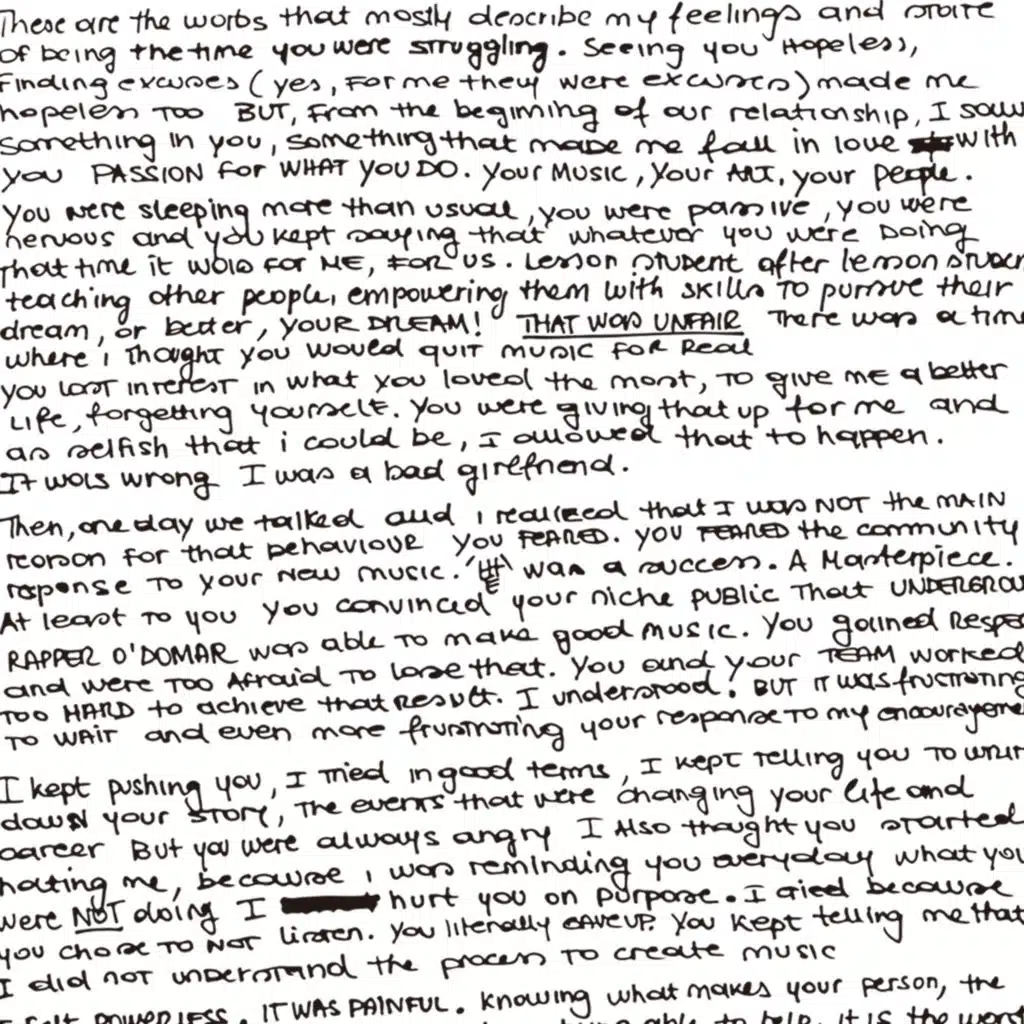 These are the words that mostly describe my feelings and state
of being the time you were struggling. Seeing you Hopeless,
Finding excuses (yes, for me they were excuses) made me
hopeless too BUT, from the beginning of our relationship, I saw
something in you, something that made me fall in love with
you PASSION for WHAT YOU DO. Your MUSIC, Your ART, your people.
You were sleeping more than usual, you were passive, you were
nervous and you kept saying that whatever you were DOING
that time it was for ME, FOR US. Lesson student after lesson studen
teaching other people, empowering them with skills to pursue their
dream, or better, YOUR DREAM! THAT WAS UNFAIR There was a time
where i thought you would quit music for Real
you lost interest in what you loved the most, to give me a better
life, forgetting yourself. You were giving that up for me and
as selfish that i could be, I allowed that to happen.
It was wrong I was a bad girlfriend.
Then, one day we talked and i realized that I was NOT the MAIN
reason for that behaviour you FEARED. you FEARED the community
response to your new music. was a success. A Masterpiece.
At least to you you convinced your niche public that UNDERGROU
RAPPER O'DOMAR was able to make good music. You gained Respe
and were too Afraid to lose that. You and your TEAM worked
too HARD to achieve that result. I understood. BUT it was frustrating
to WAIT and even more frustrating your response to my encourageme
I kept pushing you, I tried in good terms, I kept telling you to writ
down your story, the events that were changing your life and
career But you were always angry I Also thought you started
hating me, because i was reminding you everyday what you
were NOT doing I hurt you on purpose. I cried because
you chose to not listen. You literally GAVE UP. You kept telling me that
I did not understand the process to create music
I felt POWERLESS. IT WAS PAINFUL. Knowing what makes your person, the
able to help, it is the worst